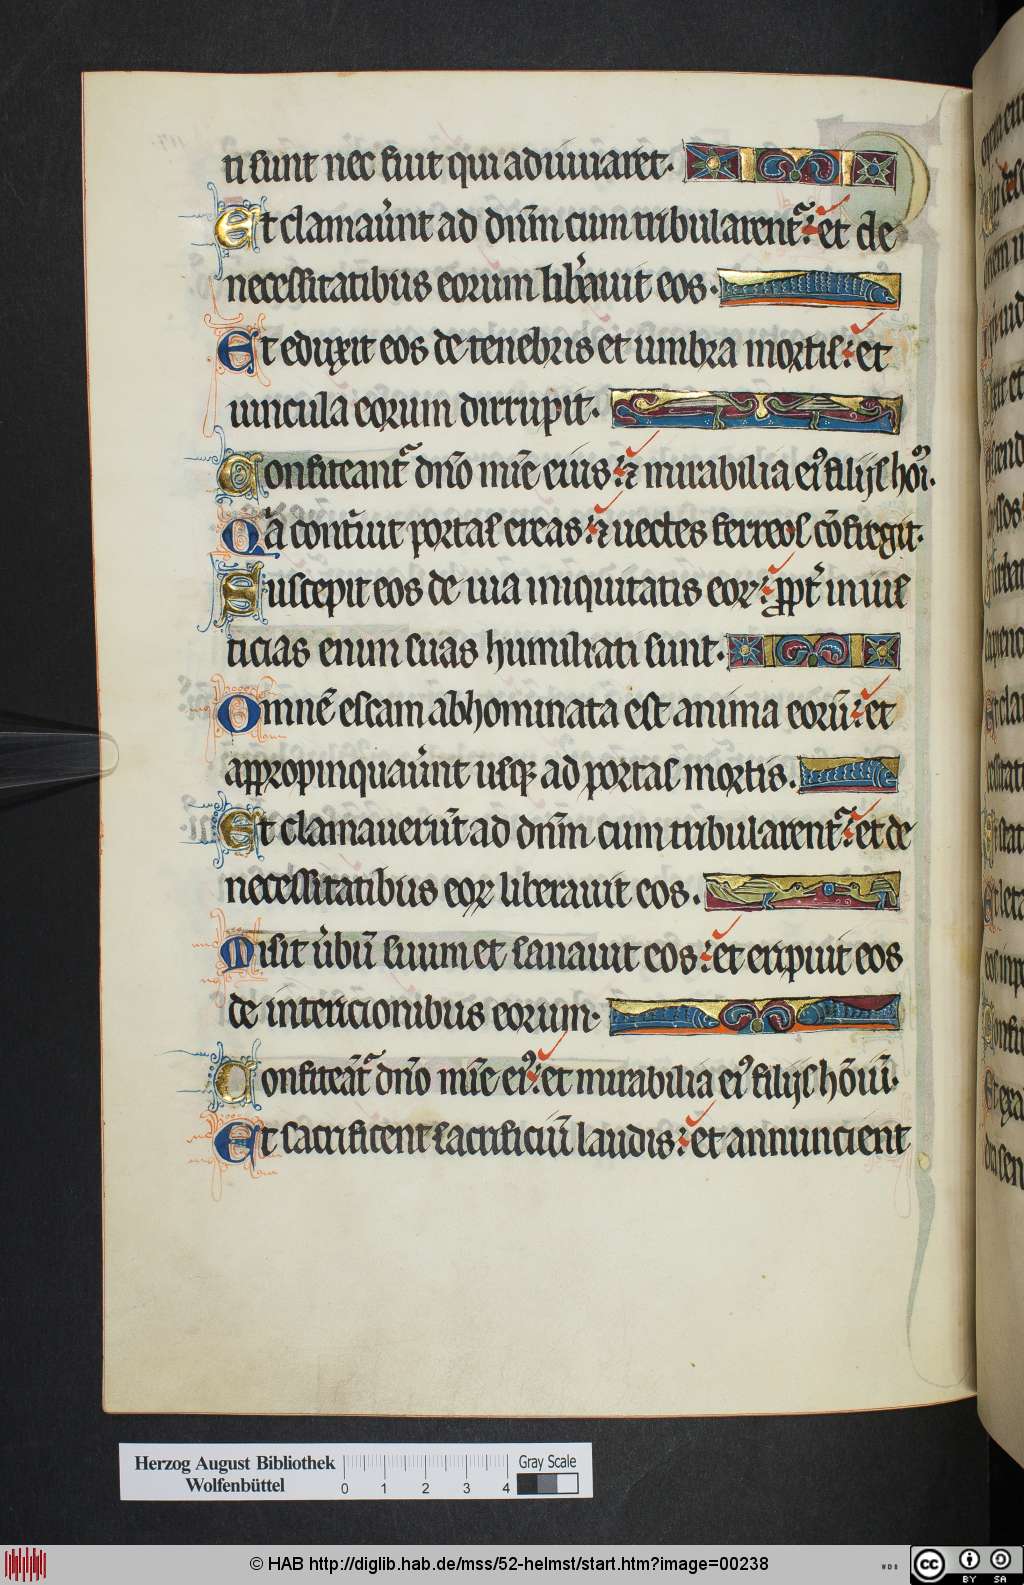 ti sunt nec fuit qui adiuuaret.
Et clamaűnt ad dn̄m cum tribularent᷑: et de
necessitatibus eorum lib̾auit eos.
Et eduxit eos de tenebris et umbra mortis: et
uincula eorum dirrupit.
Confiteant᷑ dn̄o mīe eius: ⁊ mirabilia eiꝰ filijs hōı̄.
Qa᷑ contͥuit portas ereas: ⁊ uectes ferreos cōfregit.
Suscepit eos de uia iniquitatis eoꝝ: ꝓpt̾ iniusticias enim suas humiliati sunt.
Omnē escam abhominata est anima eorū: et
appropinquaűnt usqꝫ ad portas mortis.
Et clamauerūt ad dn̄m cum tribularent᷑: et de
necessitatibus eoꝝ liberauit eos.
Misit űbū suum et sanauit eos: et eripuit eos
de intericionibus eorum.
Confiteāt᷑ dn̄o mīe eiꝰ: et mirabilia eiꝰ filijs hōıū.
Et sacrificent sacrificiū laudis: et annuncient
Herzog August Bibliothek
Wolfenbüttel
0 1 2 3 4
Gray Scale
© HAB http://diglib.hab.de/mss/52-helmst/start.htm?image=00238
WDB
cc BY SA